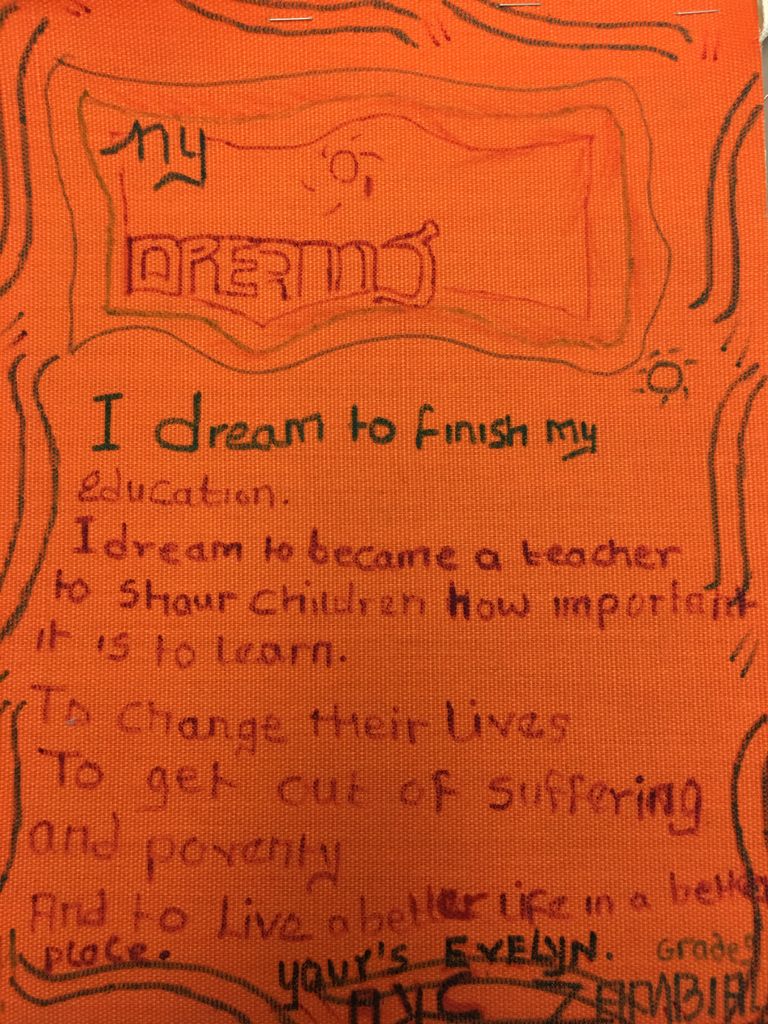 My
DREAMS
I dream to finish my
education.
I dream to became a teacher
to shour children how important
it is to learn.
To change their lives
To get out of suffering
and poverty
And to live a better life in a better
place.
your's EVELYN. Grade5